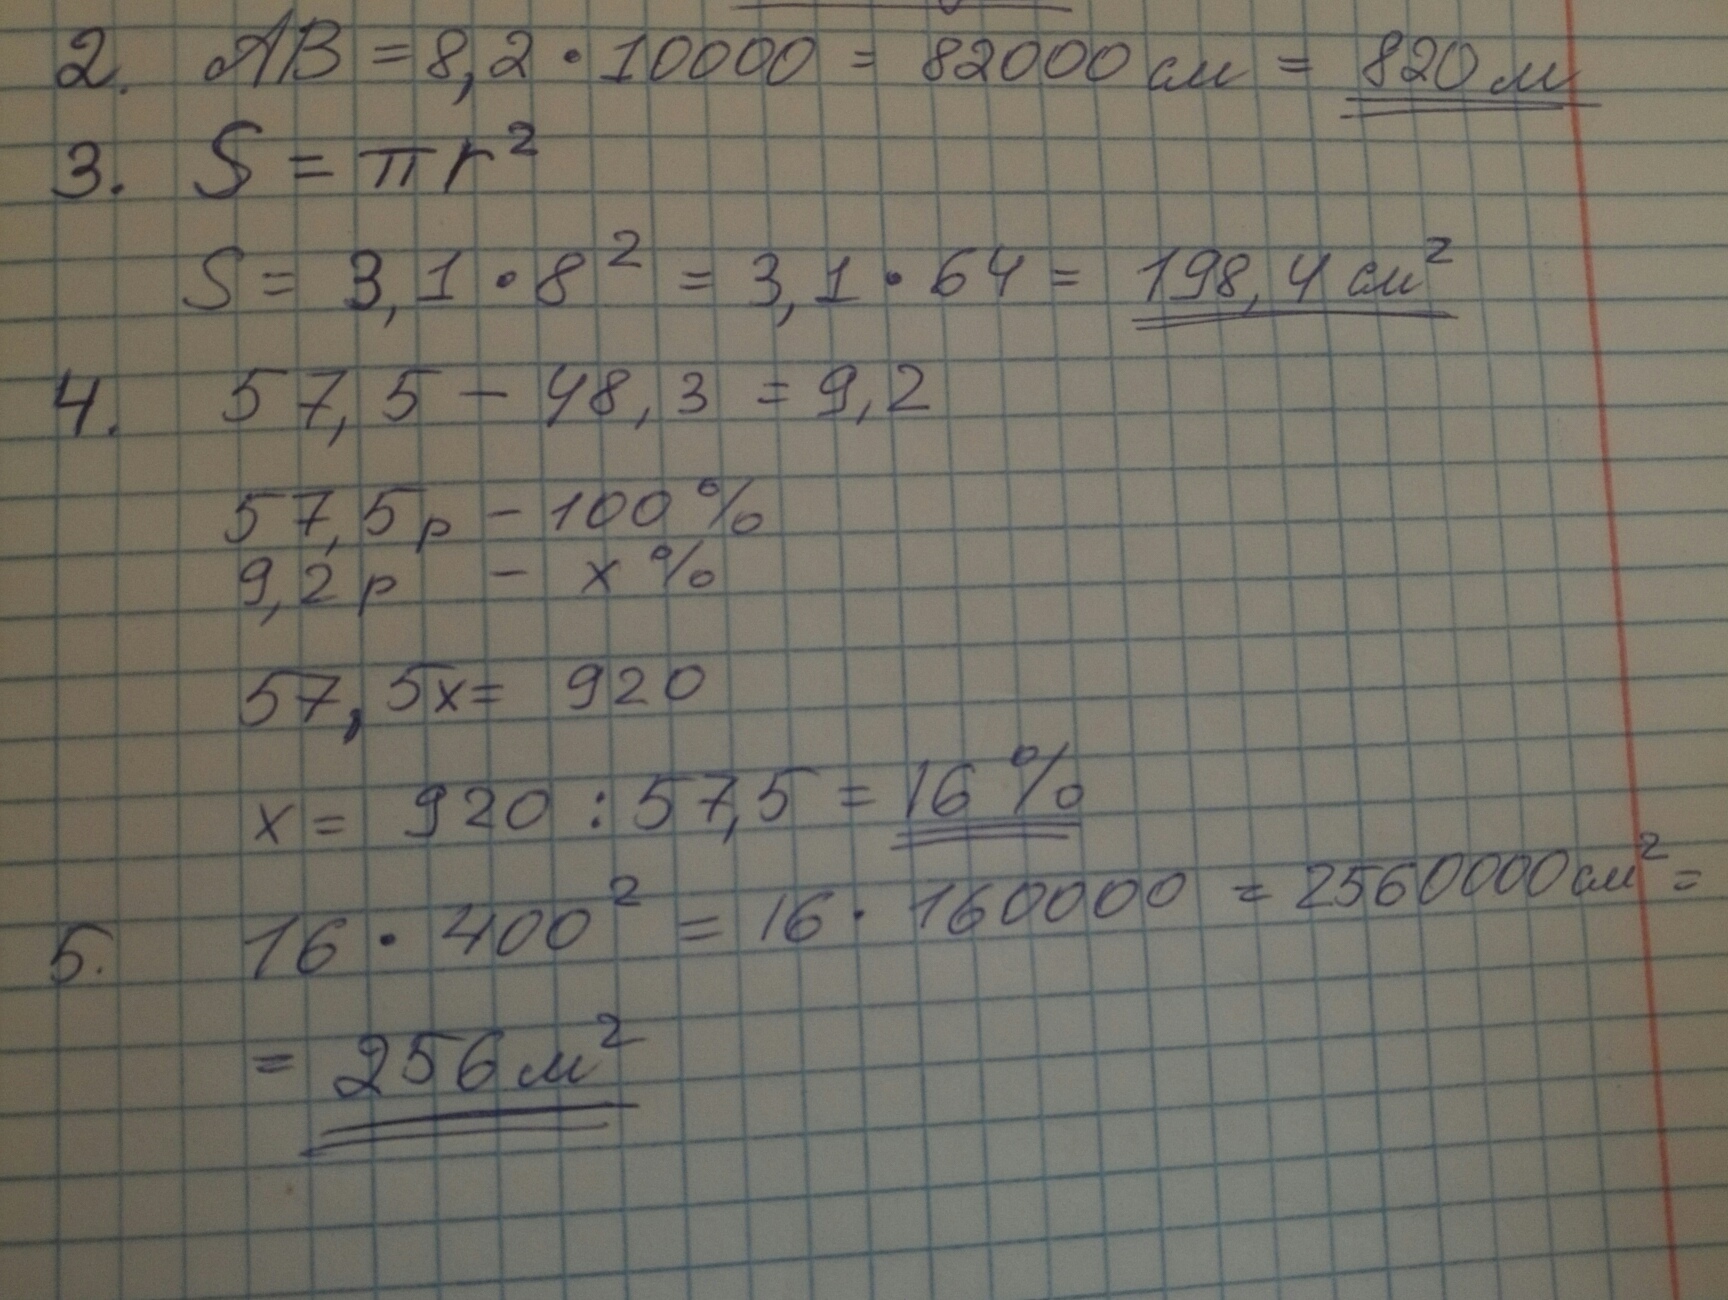 2. AB = 8,2 · 10000 = 82000 см = 820 м
3. S = πr²
S = 3,1 · 8² = 3,1 · 64 = 198,4 см²
4. 57,5 - 48,3 = 9,2
57,5 р - 100 %
9,2 р - х %
57,5х = 920
х = 920 : 57,5 = 16 %
5. 16 · 400² = 16 · 160000 = 2560000 см² =
= 256 м²